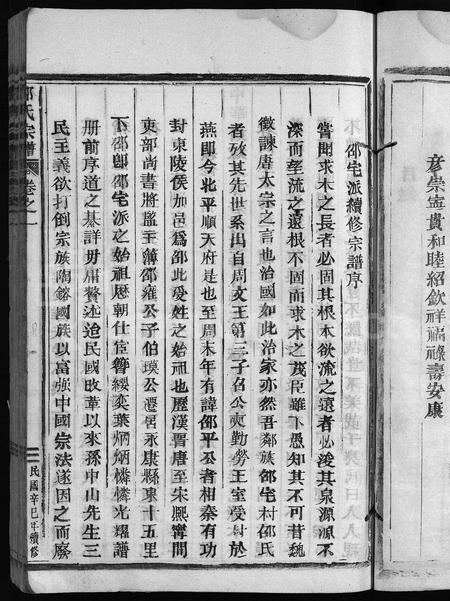 彥崇寧貴和睦紹欽祥福祿壽安康
邵宅派續修宗譜序
嘗聞求木之長者必固其根本欲流之遠者必浚其泉源源不
深而望流之遠根不固而求木之茂臣雖下愚知其不可昔魏
徵諫唐太宗之言也治國如此治家亦然吾鄰族邵宅村邵氏
者攷其先世系出自周文王第三子召公奭勤勞王室受封於
燕即今北平順天府是也至周末年有諱邵平公者相秦有功
封東陵侯加邑爲邵此受姓之始祖也歷漢晉唐至宋熙寧間
吏部尚書將監主簿邵雍公子伯瑛公遷居永康縣東十五里
下邵即邵宅派之始祖歷朝仕宦簪纓奕葉炳炳燐燐光耀譜
册前序道之綦詳毋庸贅述迨民國改革以來孫中山先生三
民主義欲打倒宗族陶鎔國族以富强中國宗法遂因之而廢
邵氏宗譜
卷之一
民國辛巳年續修